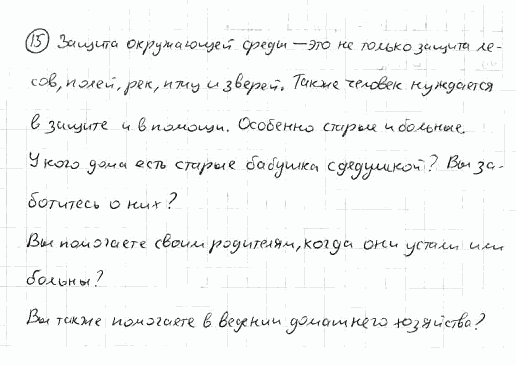 15 Защита окружающей среды — это не только защита ле-
сов, полей, рек, птиц и зверей. Также человек нуждается
в защите и в помощи. Особенно старые и больные.
У кого дома есть старые бабушка с дедушкой? Вы за-
ботитесь о них?
Вы помогаете своим родителям, когда они устали или
больны?
Вы также помогаете в ведении домашнего хозяйства?